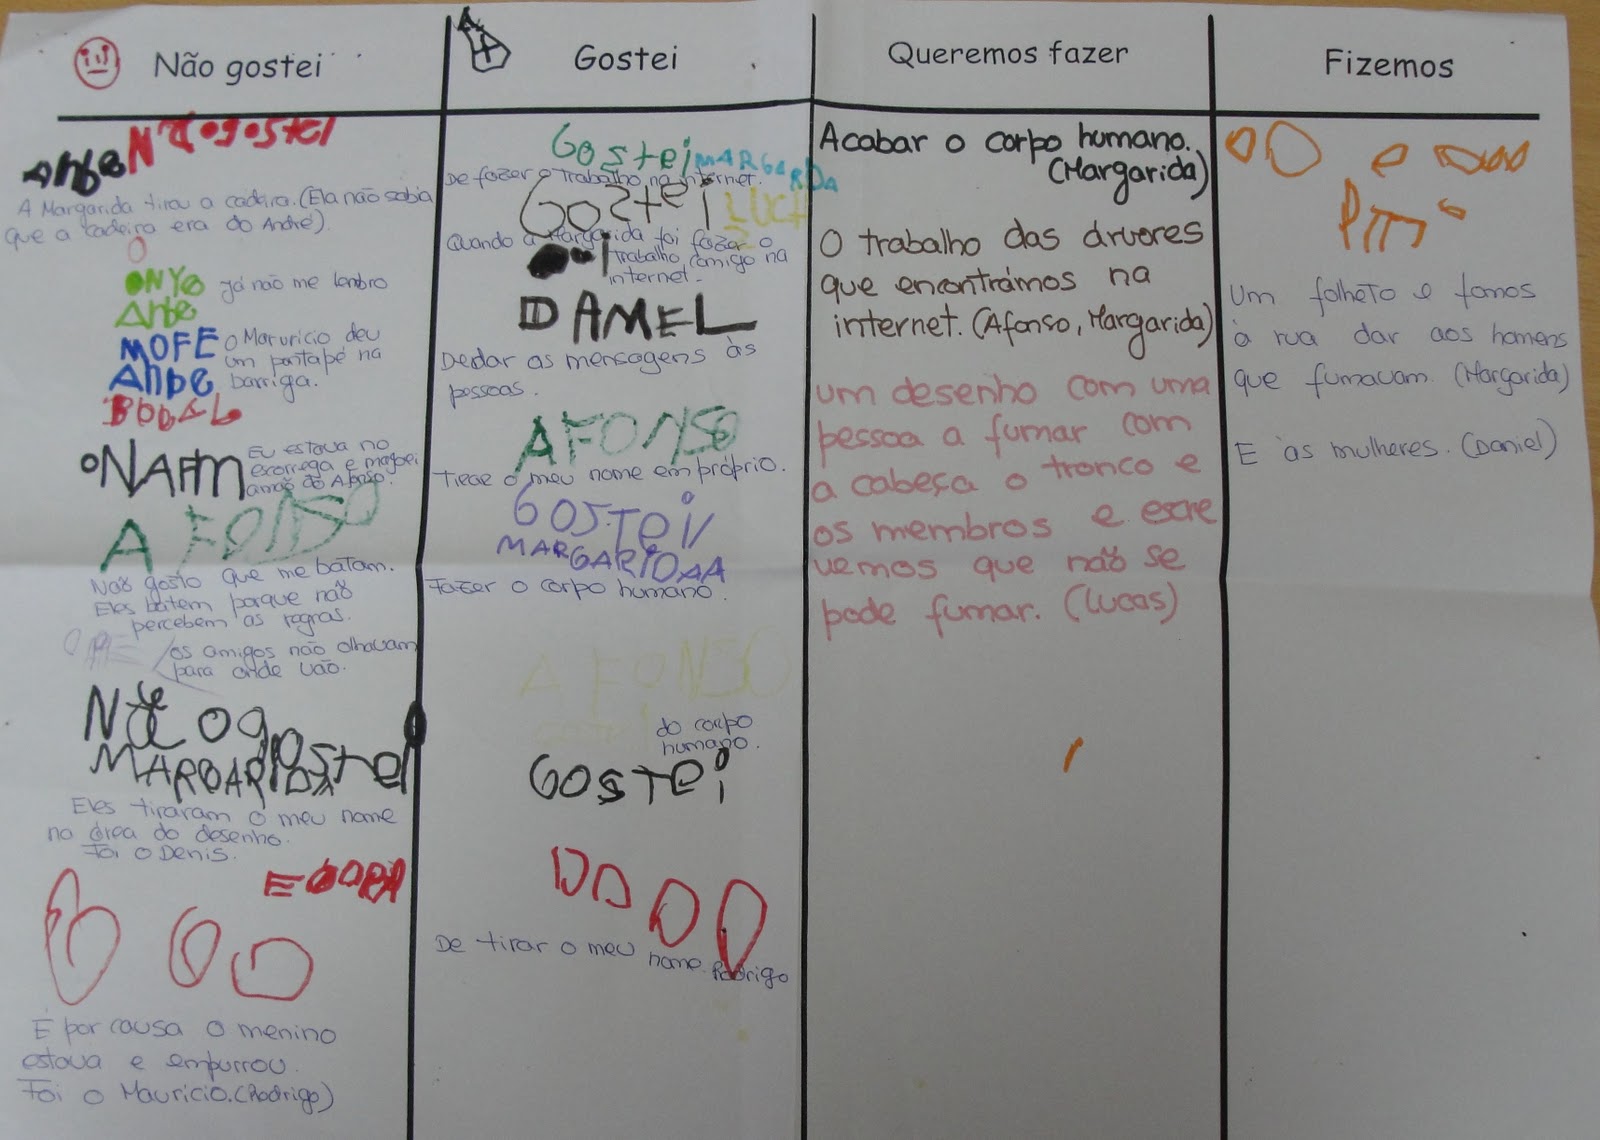 Não gostei
Gostei
Queremos fazer
Fizemos
A Margarida tirou a cadeira. (Ela não sabia
que a cadeira era do André).
ONYO
já não me lembro
Anbe
MOFE
Anbe
o Maruricio deu
um pontapé na
barriga.
ONAFM
Eu estava no
escorrega e
AFONSO
Não gosto que me batam.
Eles batem porque não
percebem as regras.
os amigos não olhavam
para onde vão.
MARGARIDA
Eles tiraram o meu nome
na área do desenho.
Foi o Denis.
É por causa o menino
estava e empurrou.
Foi o Mauricio. (Rodrigo)
Gostei MARGARIDA
De fazer o trabalho na internet.
Goztei
Quando a Margarida foi fazer o
trabalho comigo na
internet.
DAMEL
Dedar as mensagens às
pessoas.
AFONSO
Tirar o meu nome em próprio.
GOSTEi
MARGARIDAA
Fazer o corpo humano.
AFONSO
do corpo
humano.
GOSTEi
De tirar o meu nome. Rodrigo
Acabar o corpo humano.
(Margarida)
O trabalho das árvores
que encontrámos na
internet. (Afonso, Margarida)
um desenho com uma
pessoa a fumar com
a cabeça o tronco e
os membros e escre
vemos que não se
pode fumar. (Lucas)
Um folheto e fomos
à rua dar aos homens
que fumavam. (Margarida)
E às mulheres. (Daniel)